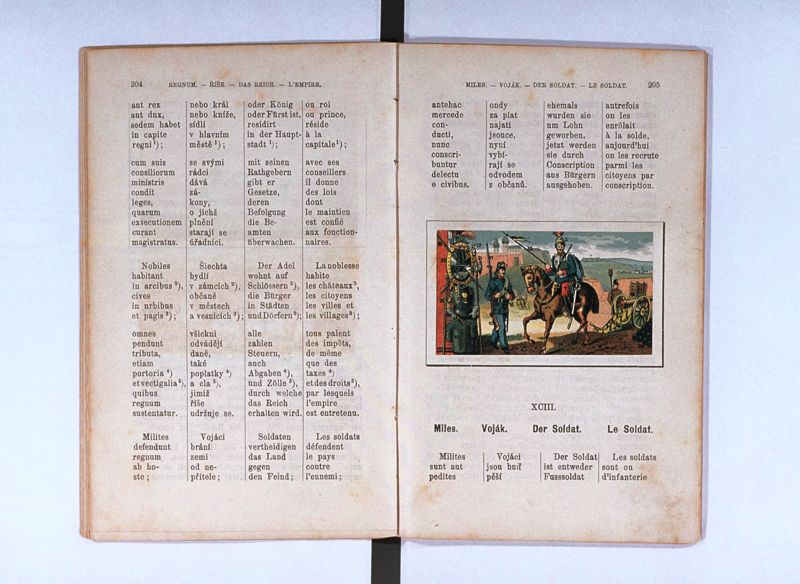 204 REGNUM. — ŘÍŠE. — DAS REICH. — L'EMPIRE.
aut rex nebo král oder König ou roi
aut dux, nebo kníže, oder Fürst ist, ou prince,
sedem habet sídlí residirt réside
in capite v hlavním in der Haupt- à la
regni ¹); městě ¹); stadt ¹); capitale ¹);
cum suis se svými mit seinen avec ses
consiliorum rádci Rathgebern conseillers
ministris dává gibt er il donne
condit zá- Gesetze, des lois
leges, kony, deren dont
quarum o jichž Befolgung le maintien
exsecutionem plnění die Be- est confié
curant starají se amten aux fonction-
magistratus. úřadníci. überwachen. naires.
Nobiles Šlechta Der Adel La noblesse
habitant bydlí wohnt auf habite
in arcibus ²), v zámcích ²), Schlössern ²), les châteaux ²,
cives občané die Bürger les citoyens
in urbibus v městech in Städten les villes et
et pagis ³); a vesnicích ³); und Dörfern ³); les villages ³);
omnes všickni alle tous paient
pendunt odvádějí zahlen des impôts,
tributa, daně, Steuern, de même
etiam také auch que des
portoria ⁴) poplatky ⁴) Abgaben ⁴), taxes ⁴)
et vectigalia ⁵), a cla ⁵), und Zölle ⁵), et des droits ⁵),
quibus jimiž durch welche par lesquels
regnum říše das Reich l'empire
sustentatur. udržuje se. erhalten wird. est entretenu.
Milites Vojáci Soldaten Les soldats
defendunt brání vertheidigen défendent
regnum zemi das Land le pays
ab ho- od ne- gegen contre
ste; přítele; den Feind; l'ennemi;
MILES. — VOJÁK. — DER SOLDAT. — LE SOLDAT. 205
antehac ondy ehemals autrefois
mercede za plat wurden sie on les
con- najati um Lohn enrôlait
ducti, jsouce, geworben, à la solde,
nunc nyní jetzt werden aujourd'hui
conscri- vybí- sie durch on les recrute
buntur rají se Conscription parmi les
delectu odvodem aus Bürgern citoyens par
e civibus. z občanů. ausgehoben. conscription.
XCIII.
Miles. Voják. Der Soldat. Le Soldat.
Milites Vojáci Der Soldat Les soldats
sunt aut jsou buď ist entweder sont ou
pedites pěší Fusssoldat d'infanterie